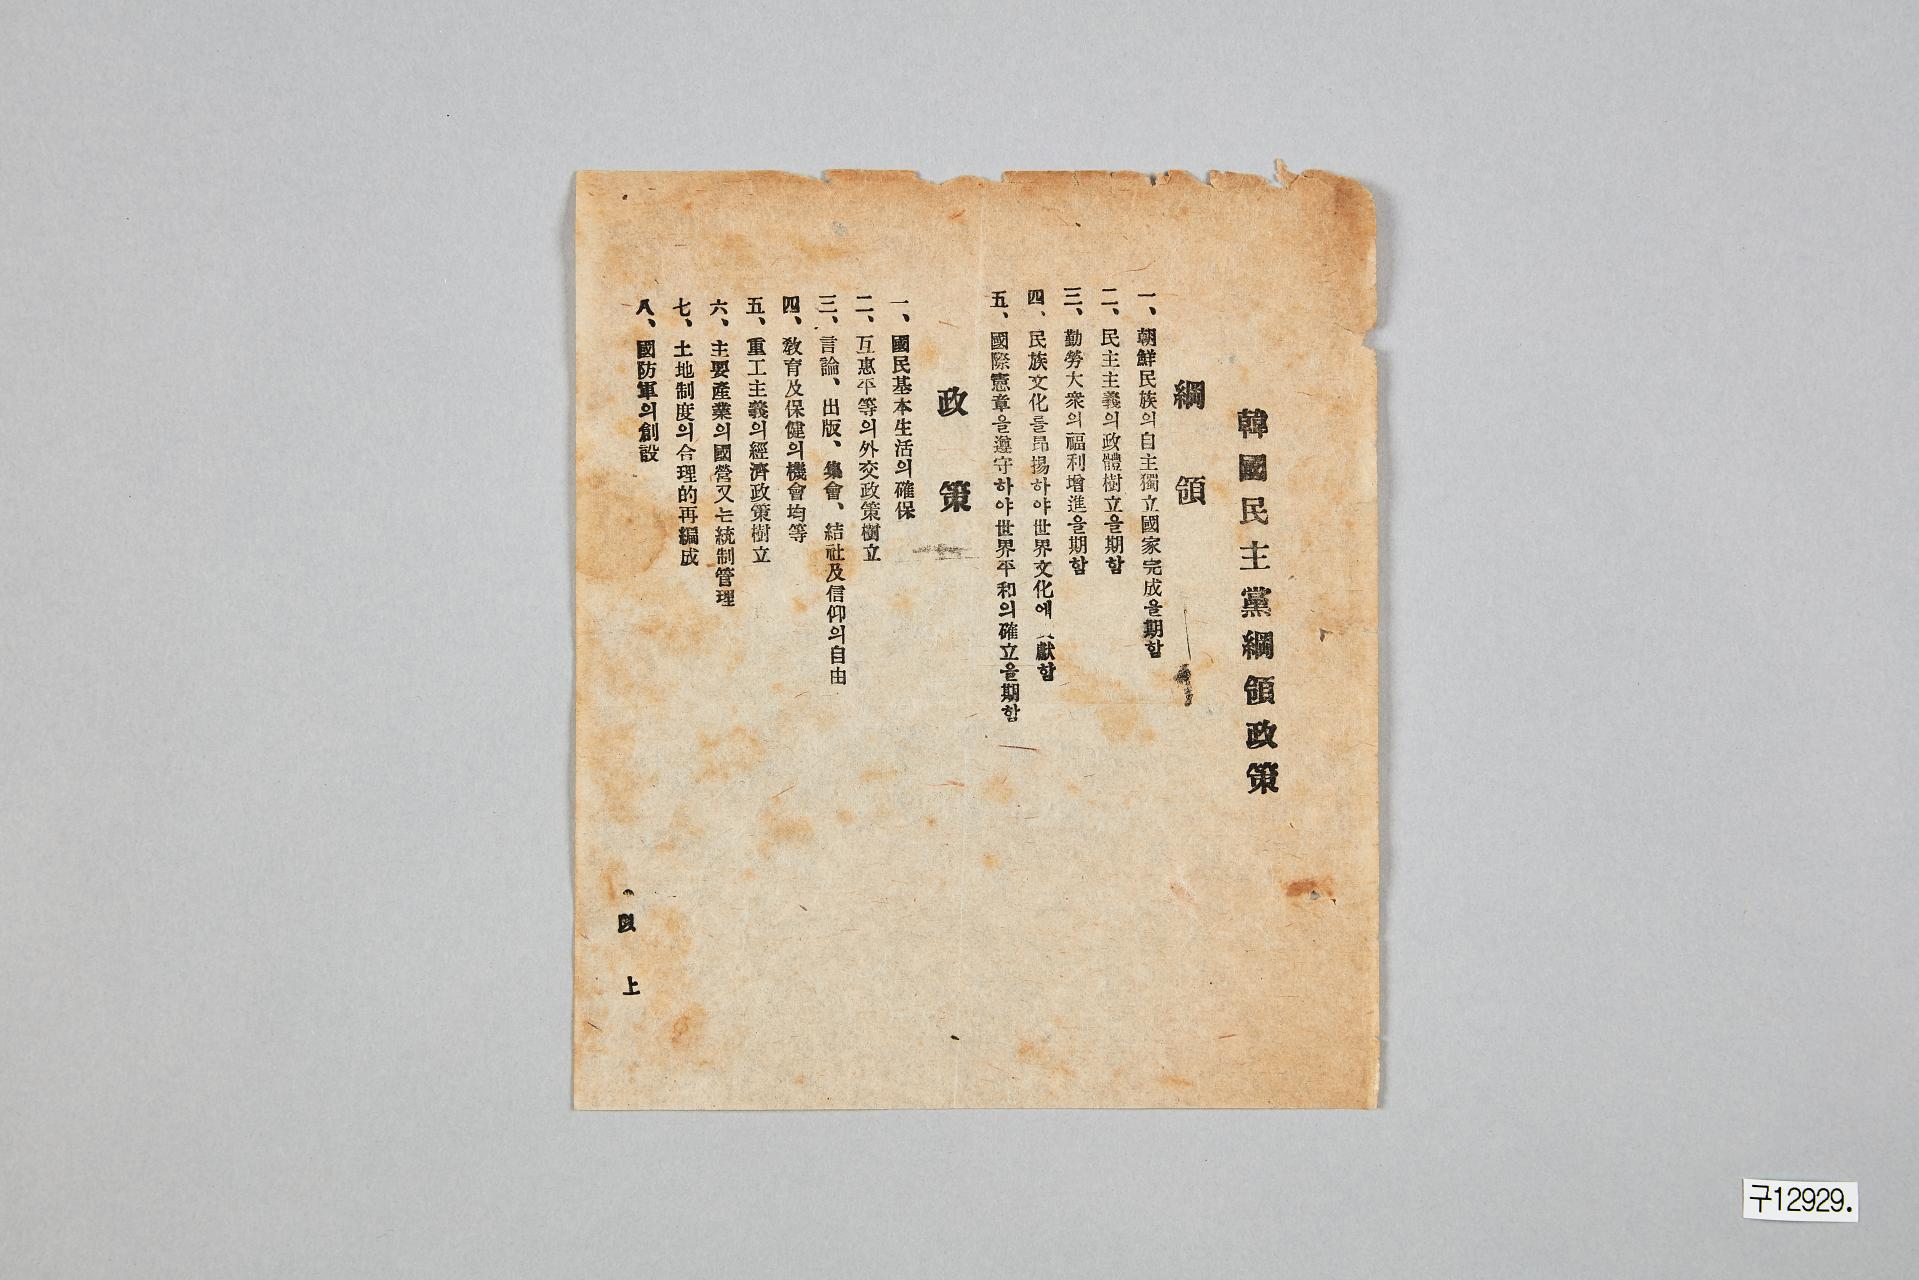 韓國民主黨綱領政策
綱領
一、朝鮮民族의自主獨立國家完成을期함
二、民主主義의政體樹立을期함
三、勤勞大衆의福利增進을期함
四、民族文化를昂揚하야世界文化에 獻함
五、國際憲章을遵守하야世界平和의確立을期함
政策
一、國民基本生活의確保
二、互惠平等의外交政策樹立
三、言論、出版、集會、結社及信仰의自由
四、敎育及保健의機會均等
五、重工主義의經濟政策樹立
六、主要產業의國營又는統制管理
七、土地制度의合理的再編成
八、國防軍의創設
以上
구12929.